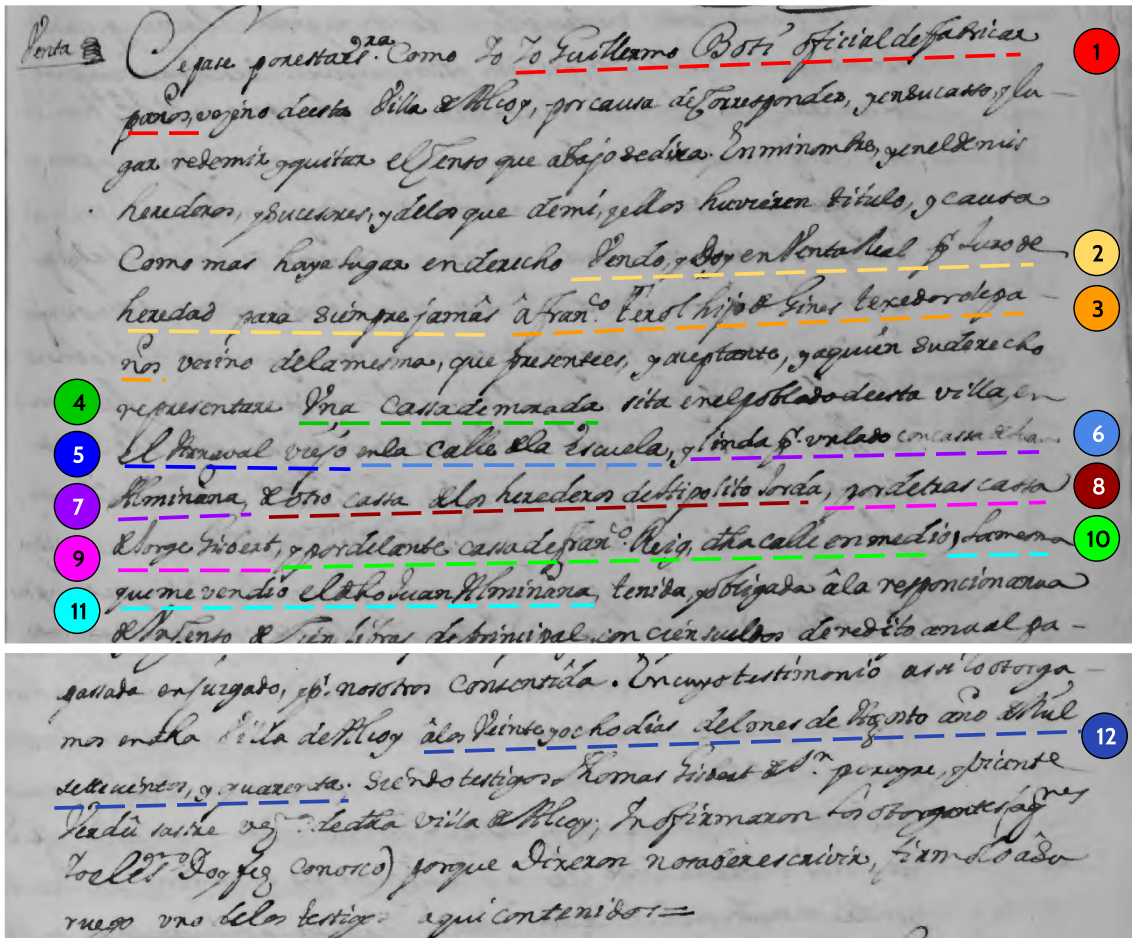 Venta
Sepase por esta escra. Como Yo Yo Guillermo Botí oficial de fabricar 1
paños, vezino de esta Villa de Alcoy, por causa de Corresponder, y en su casso, y lu-
gar redemir y quitar el Censo que abajo se dira. En mi nombre, y en el de mis
herederos, y sucesores, y de los que de mi, y ellos huvieren titulo, y causa
Como mas haya lugar en derecho Vendo, y Doy en Venta Real pr. Juro de 2
heredad para siempre jamâs â Franco. Terol hijo de Gines texedor de pa- 3
ños vecino de la mesma, que presente es, y aceptante, y a quien su derecho
4 representare Una cassa de morada sita en el poblado de esta villa, en
5 el Arraval viejo en la calle de la Escuela, y linda pr. un lado con cassa de Juan 6
7 Almiñana, de otro cassa de los herederos de Hipolito Jorda, por detras cassa 8
9 de Jorge Gisbert, y por delante cassa de Franco. Reig, dha calle en medio, La mesma 10
11 que me vendio el dho Juan Almiñana, tenida, y obligada â la responcion annua
de Un Censo de Cien libras de principal, con cien sueldos de redito annual pa-
passada en juzgado, y pr. nosotros Consentida. En cuyo testimonio assi lo otorga-
mos en dha Villa de Alcoy â los Veinte y ocho dias del mes de Agosto año de Mil 12
settecientos, y quarenta. Siendo testigos Thomas Gisbert de perayre, y Vicente
Verdú sastre de dha villa de Alcoy; Y no firmaron Los otorgantes (a qnes
Yo el Esno Doy feé conosco) porque Dixeron no saber escrivir, firmólo a su
ruego uno de los testigos aqui contenidos=